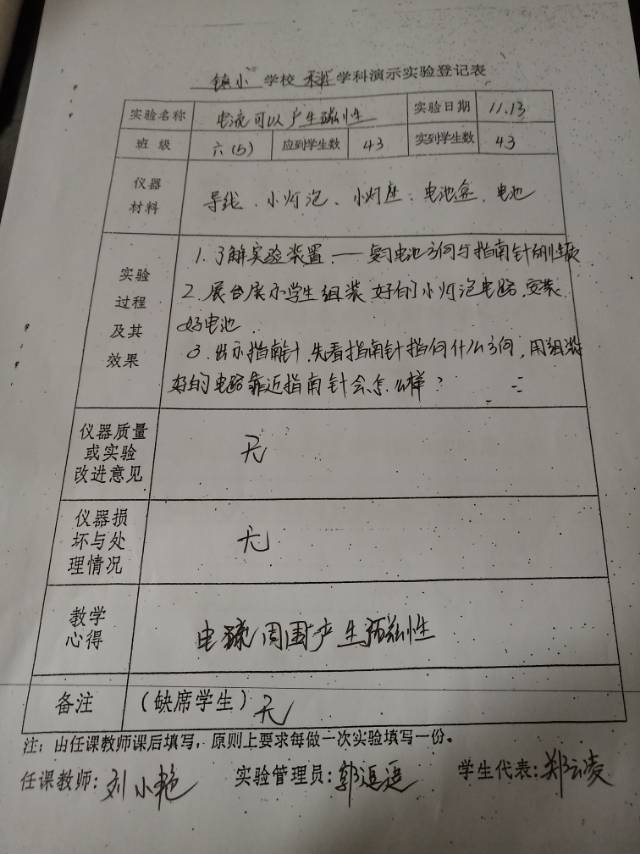 镇小 学校 科 学科演示实验登记表
实验名称 电流可以产生磁性 实验日期 11.13
班 级 六(5) 应到学生数 43 实到学生数 43
仪器
材料
导线、小灯泡、小灯座、电池盒、电池
实验
过程
及其
效果
1.了解实验装置——电池方向与指南针的
2.展台展示学生组装好的小灯泡电路,安装
好电池
3.出示指南针,先看指南针指向什么方向,用组装
好的电路靠近指南针会怎么样?
仪器质量
或实验
改进意见
无
仪器损
坏与处
理情况
无
教学
心得
周围产生磁性
备注 (缺席学生) 无
注:由任课教师课后填写,原则上要求每做一次实验填写一份。
任课教师:刘小艳 实验管理员:郭 学生代表:郑云凌